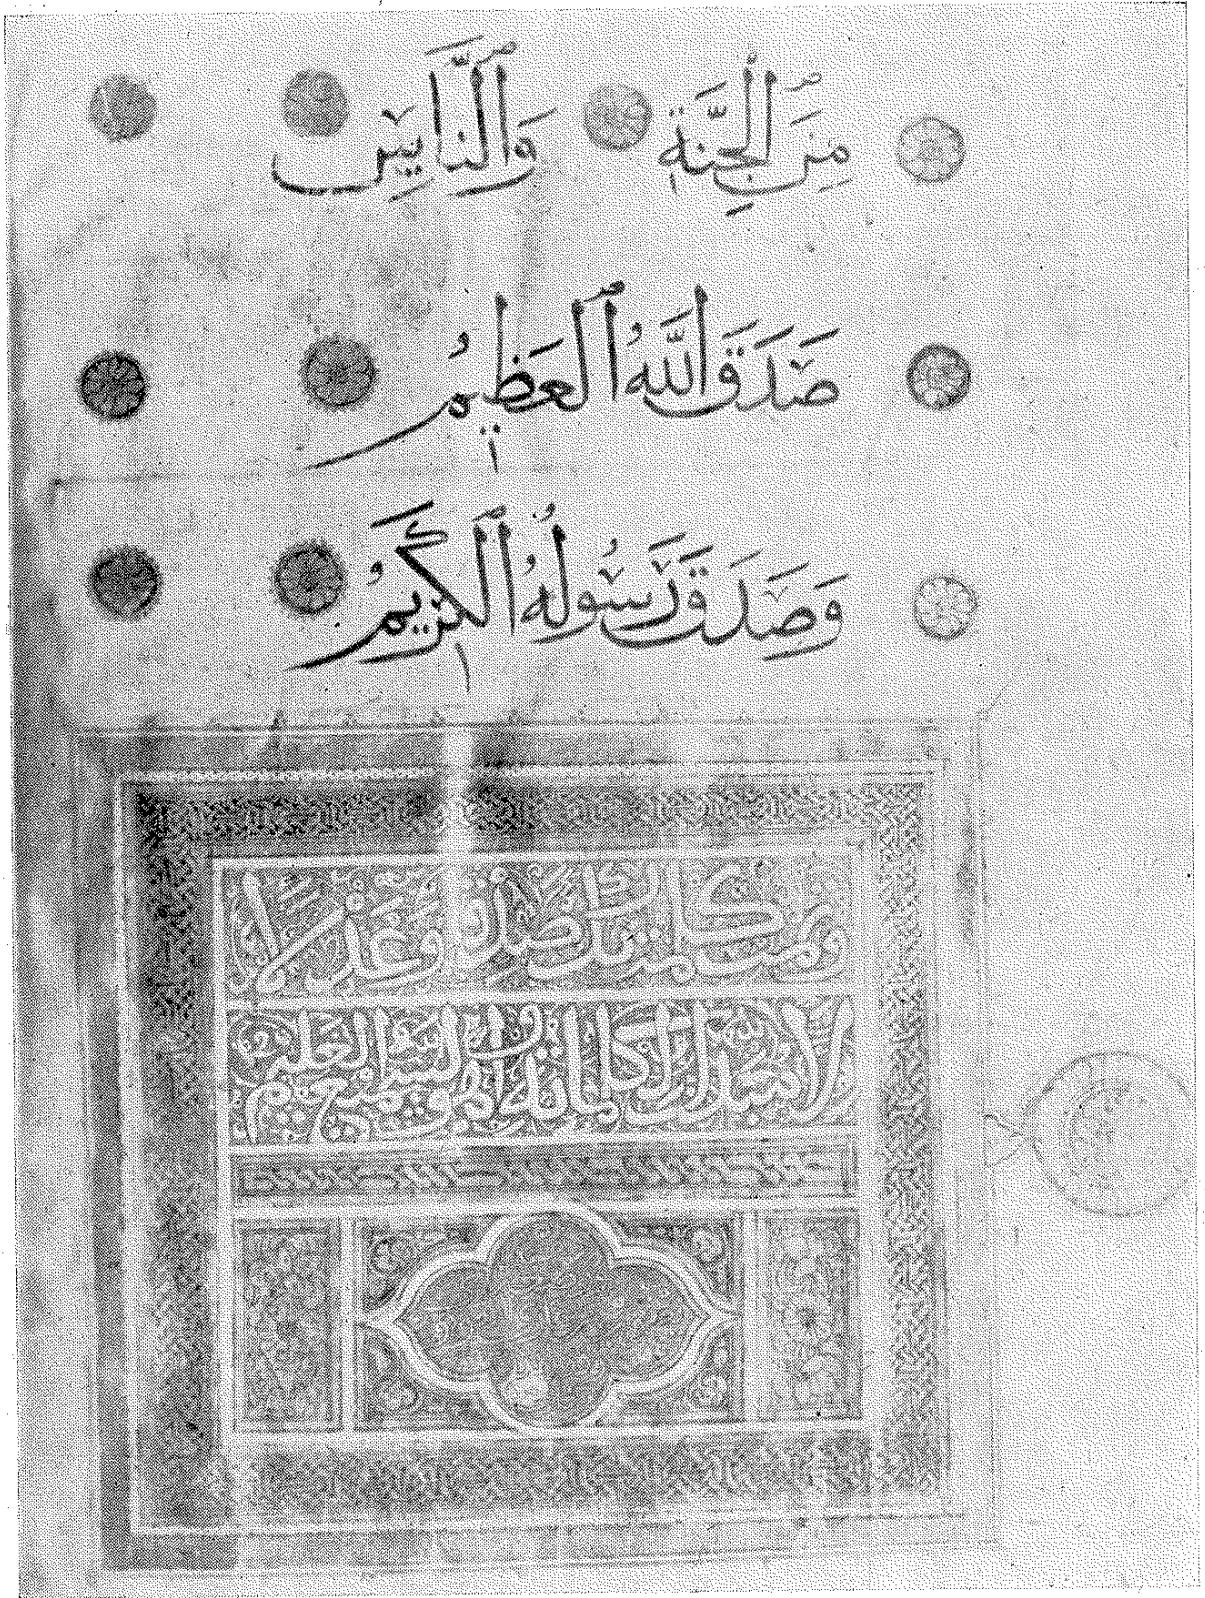 مِنَ ٱلْجِنَّةِ وَٱلنَّاسِ
صَدَقَ ٱللَّهُ ٱلْعَظِيمُ
وَصَدَقَ رَسُولُهُ ٱلْكَرِيمُ
وتمت كلمت ربك صدقا وعدلا
لا مبدل لكلماته وهو السميع العليم